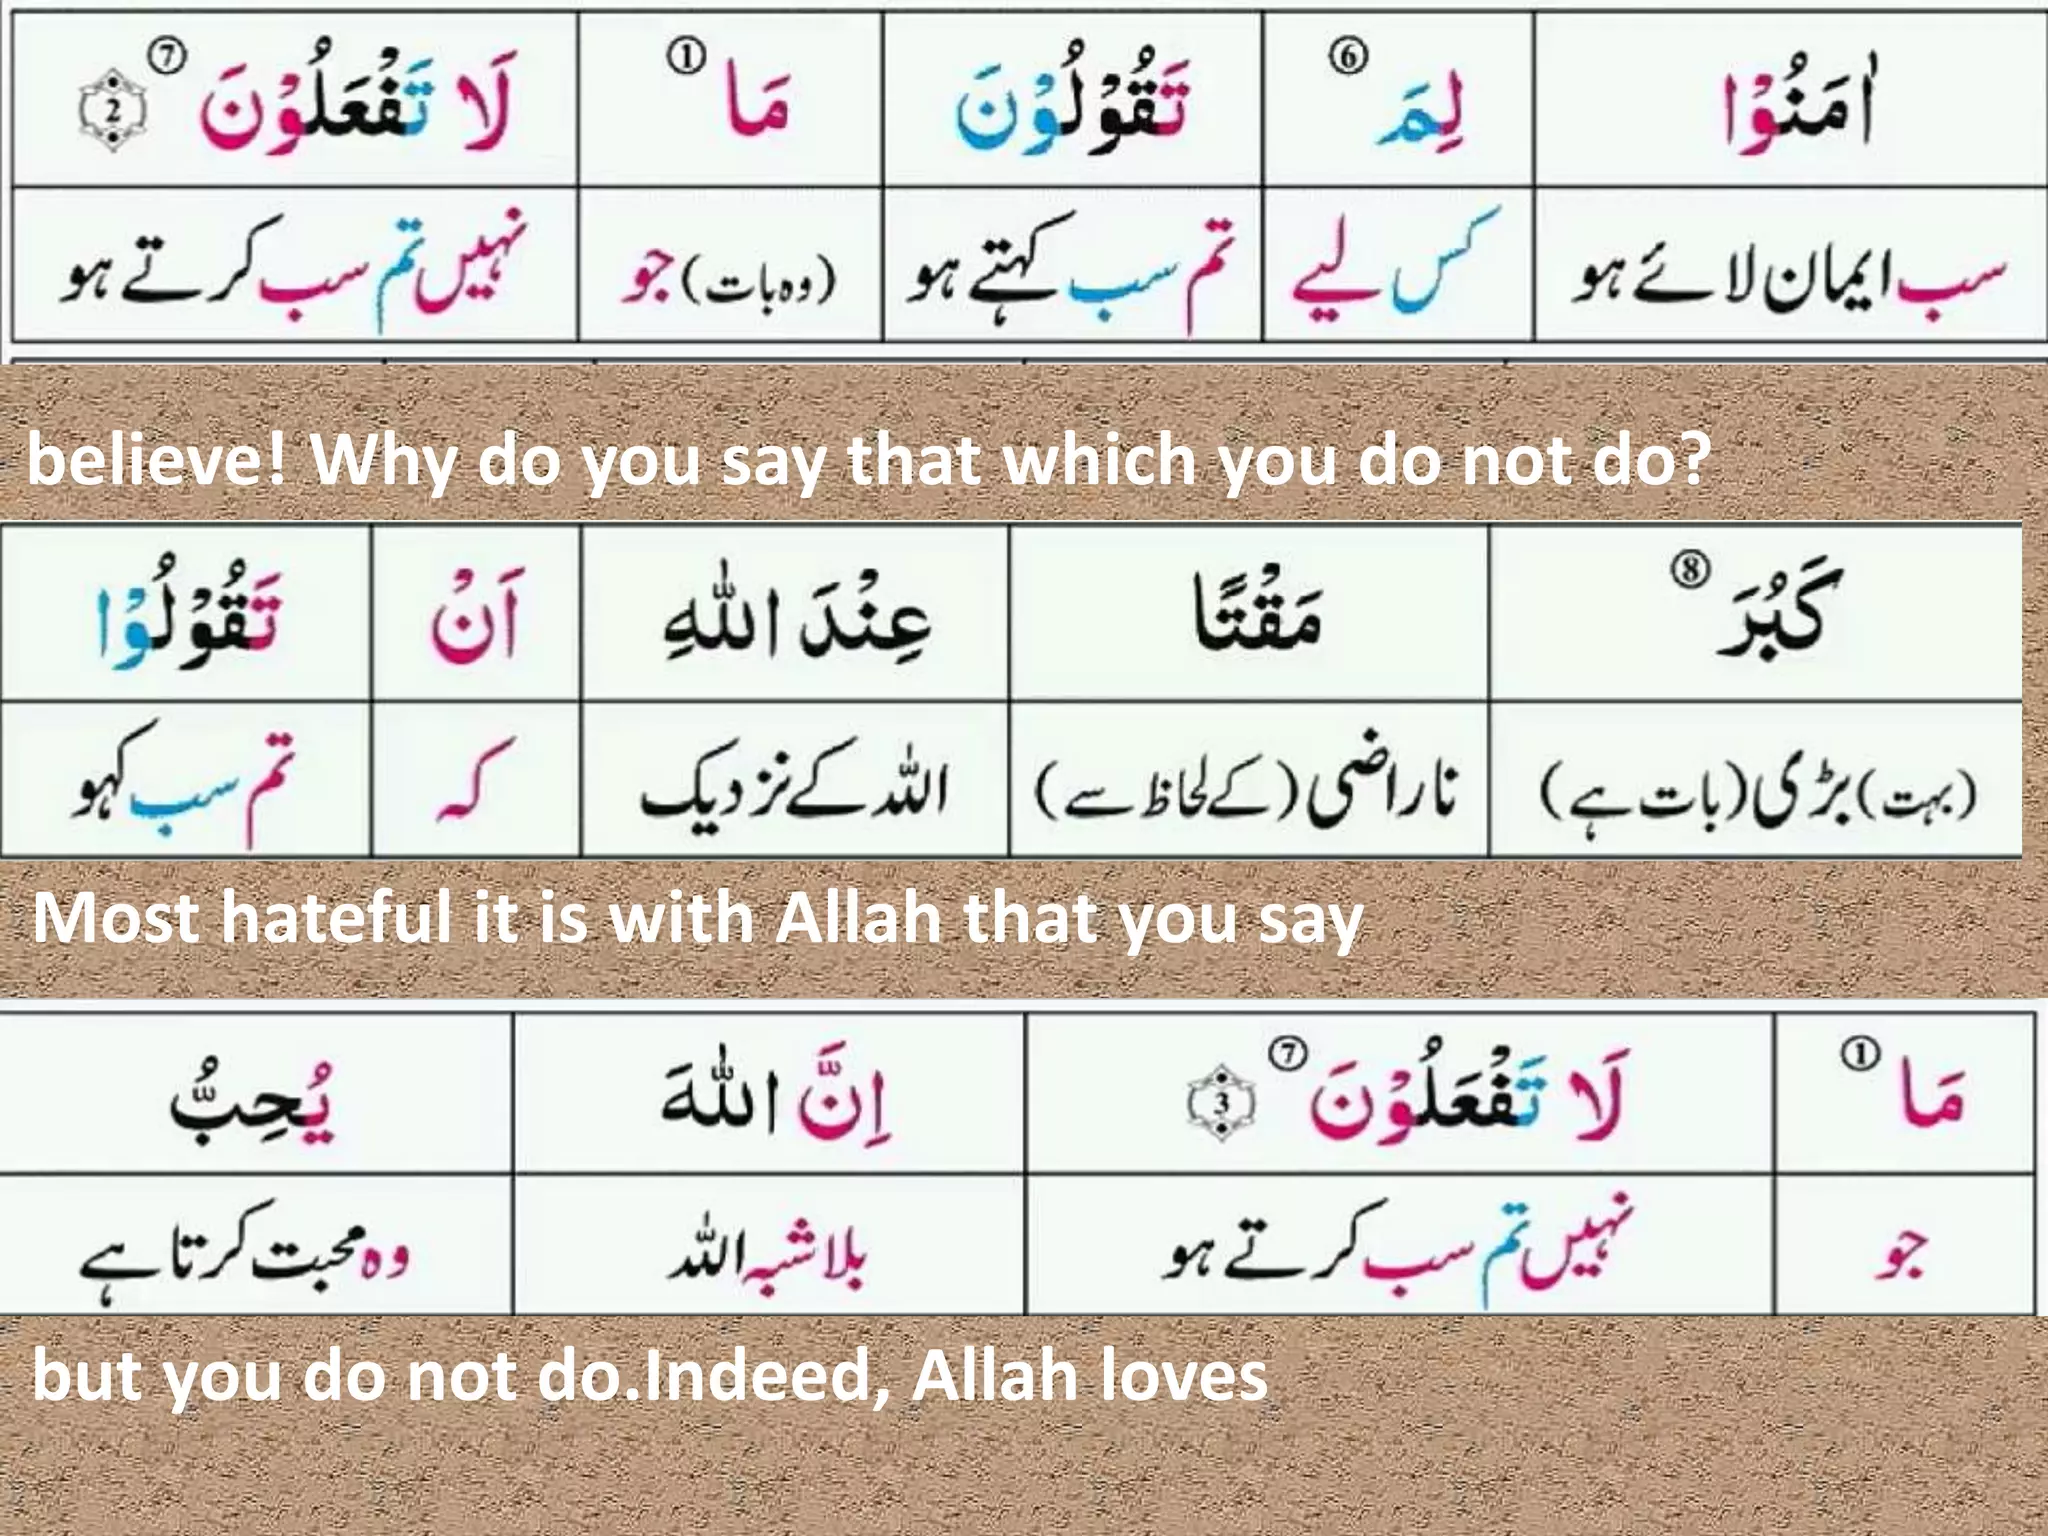 اٰمَنُوْا لِمَ ⑥ تَقُوْلُوْنَ مَا ① لَا تَفْعَلُوْنَ ⑦ 2
سب ایمان لائے ہو کس لیے تم سب کہتے ہو (وہ بات) جو نہیں تم سب کرتے ہو
believe! Why do you say that which you do not do?
كَبُرَ ⑧ مَقْتًا عِنْدَ اللّٰهِ اَنْ تَقُوْلُوْا
(بہت) بڑی (بات ہے) ناراضی (کے لحاظ سے) اللہ کے نزدیک کہ تم سب کہو
Most hateful it is with Allah that you say
مَا ① لَا تَفْعَلُوْنَ ⑦ 3 اِنَّ اللّٰهَ يُحِبُّ
جو نہیں تم سب کرتے ہو بلاشبہ اللہ وہ محبت کرتا ہے
but you do not do.Indeed, Allah loves